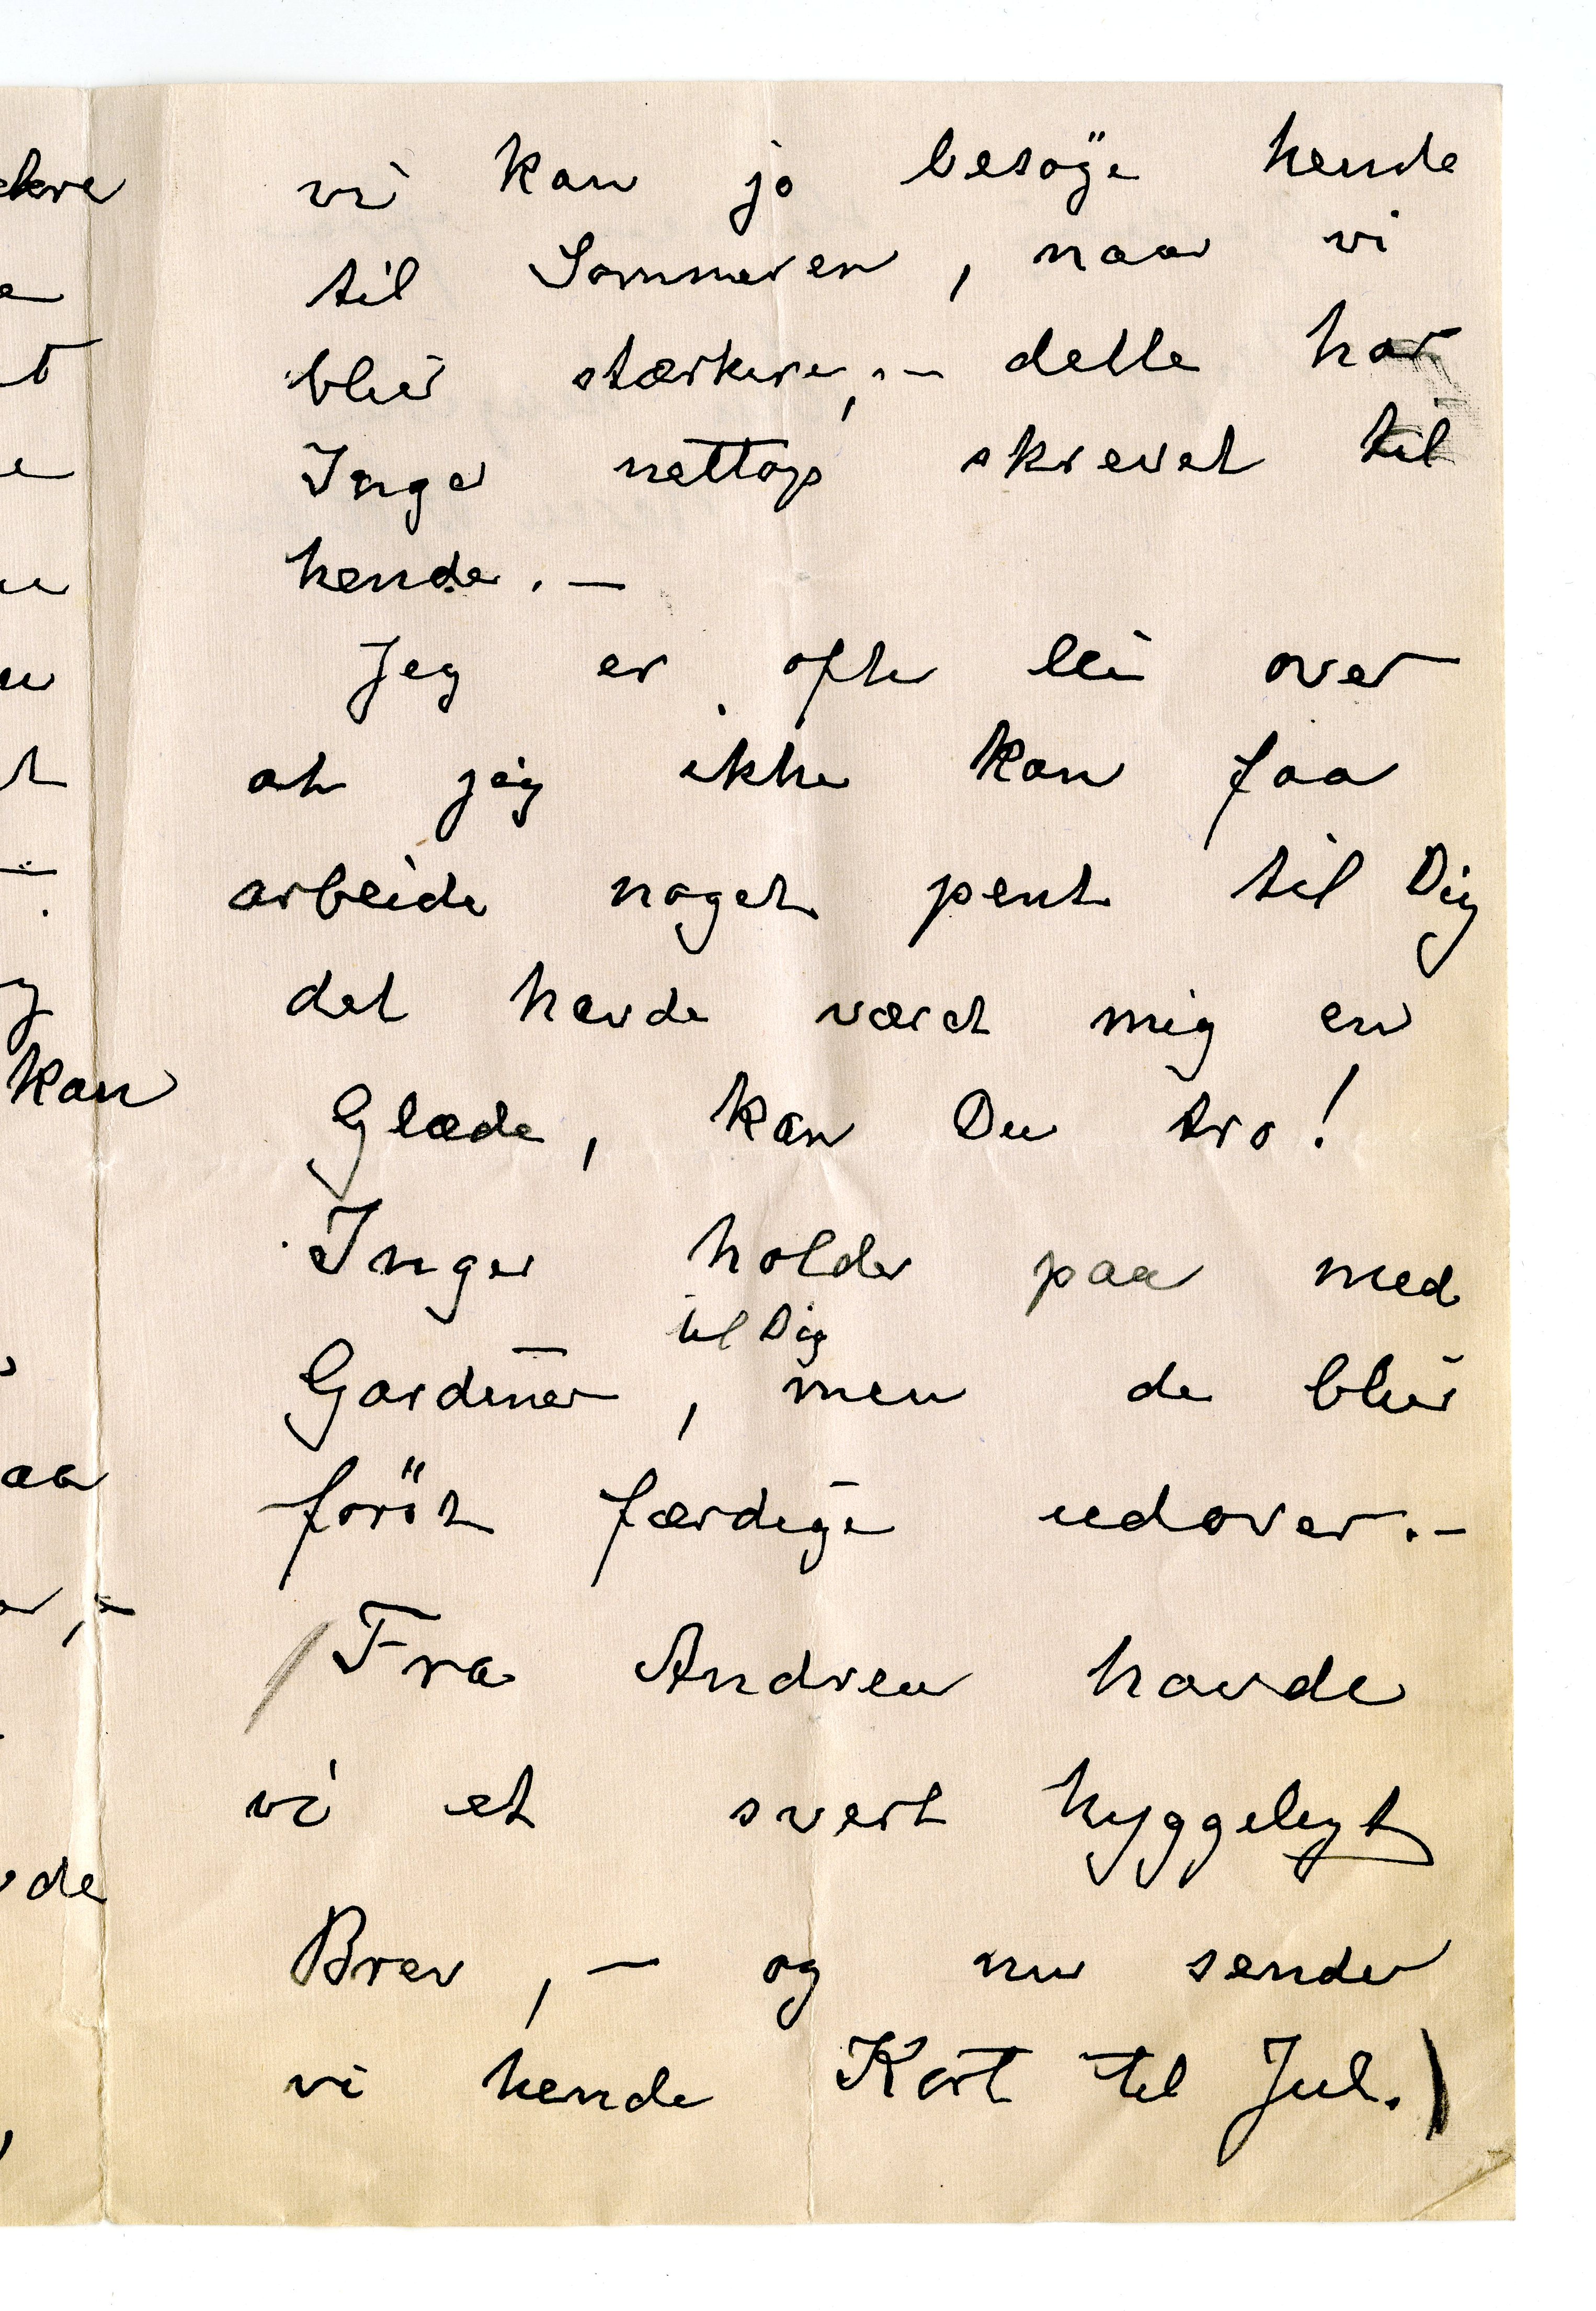 vi kan jo besöge hende
til Sommeren, naar vi
blir stærkere, – dette har
Inger nettop skrevet til
hende. –
Jeg er ofte lei over
at jeg ikke kan faa
arbeide noget pent til Dig
det havde været mig en
Glæde, kan Du tro!
Inger holder paa med
til Dig
Gardiner, men de blir
först færdige udover. –
/Fra Andrea havde
vi et svert hyggeligt
Brev, – og nu sender
vi hende Kort til Jul.)
kan
aa